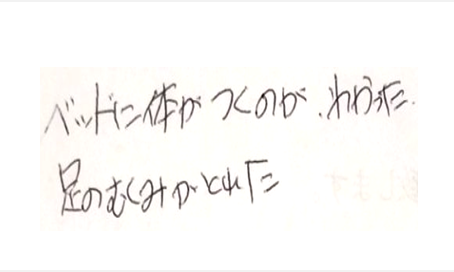 ベッドに体がつくのが、わかった.
足のむくみがとれた